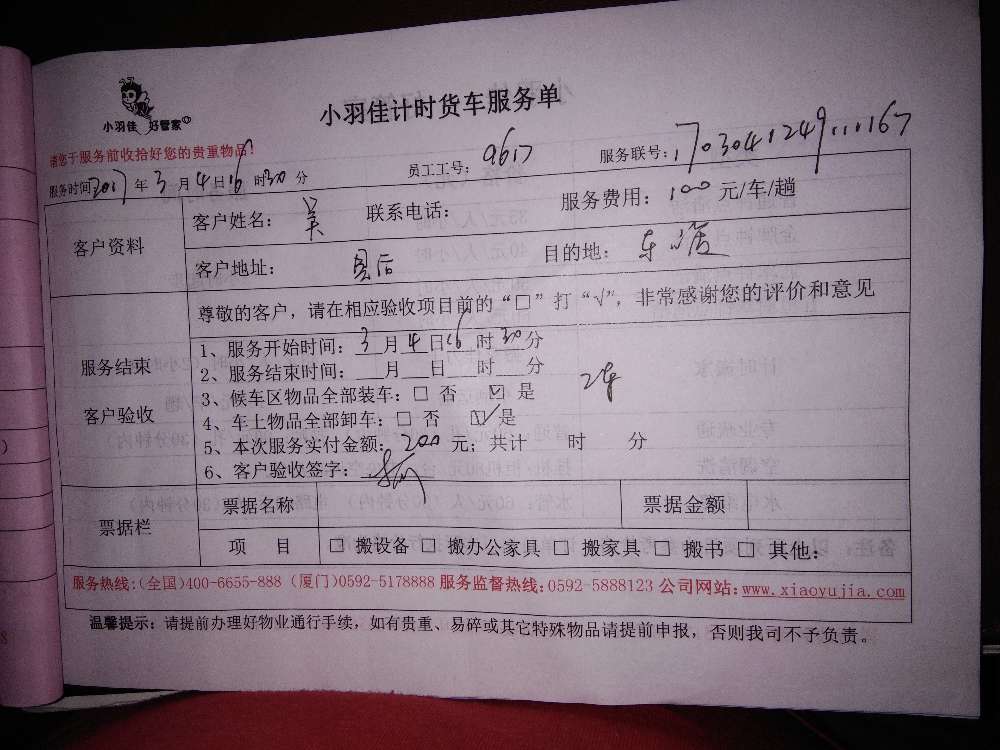 小羽佳 好管家
小羽佳计时货车服务单
请您于服务前收拾好您的贵重物品！
服务时间2017年3月4日16时30分 员工工号：9617 服务联号：170304124911167
客户资料
客户姓名：吴 联系电话： 服务费用：100元/车/趟
客户地址： 目的地：
服务结束
客户验收
尊敬的客户，请在相应验收项目前的“□”打“√”，非常感谢您的评价和意见
1、服务开始时间：3月4日16时30分
2、服务结束时间： 月 日 时 分
3、候车区物品全部装车：□ 否 ☑ 是 2车
4、车上物品全部卸车：□ 否 ☑ 是
5、本次服务实付金额：200元；共计 时 分
6、客户验收签字：
票据栏
票据名称 票据金额
项 目 □ 搬设备 □ 搬办公家具 □ 搬家具 □ 搬书 □ 其他：
服务热线：(全国)400-6655-888 (厦门)0592-5178888 服务监督热线：0592-5888123 公司网站：www.xiaoyujia.com
温馨提示：请提前办理好物业通行手续，如有贵重、易碎或其它特殊物品请提前申报，否则我司不予负责。